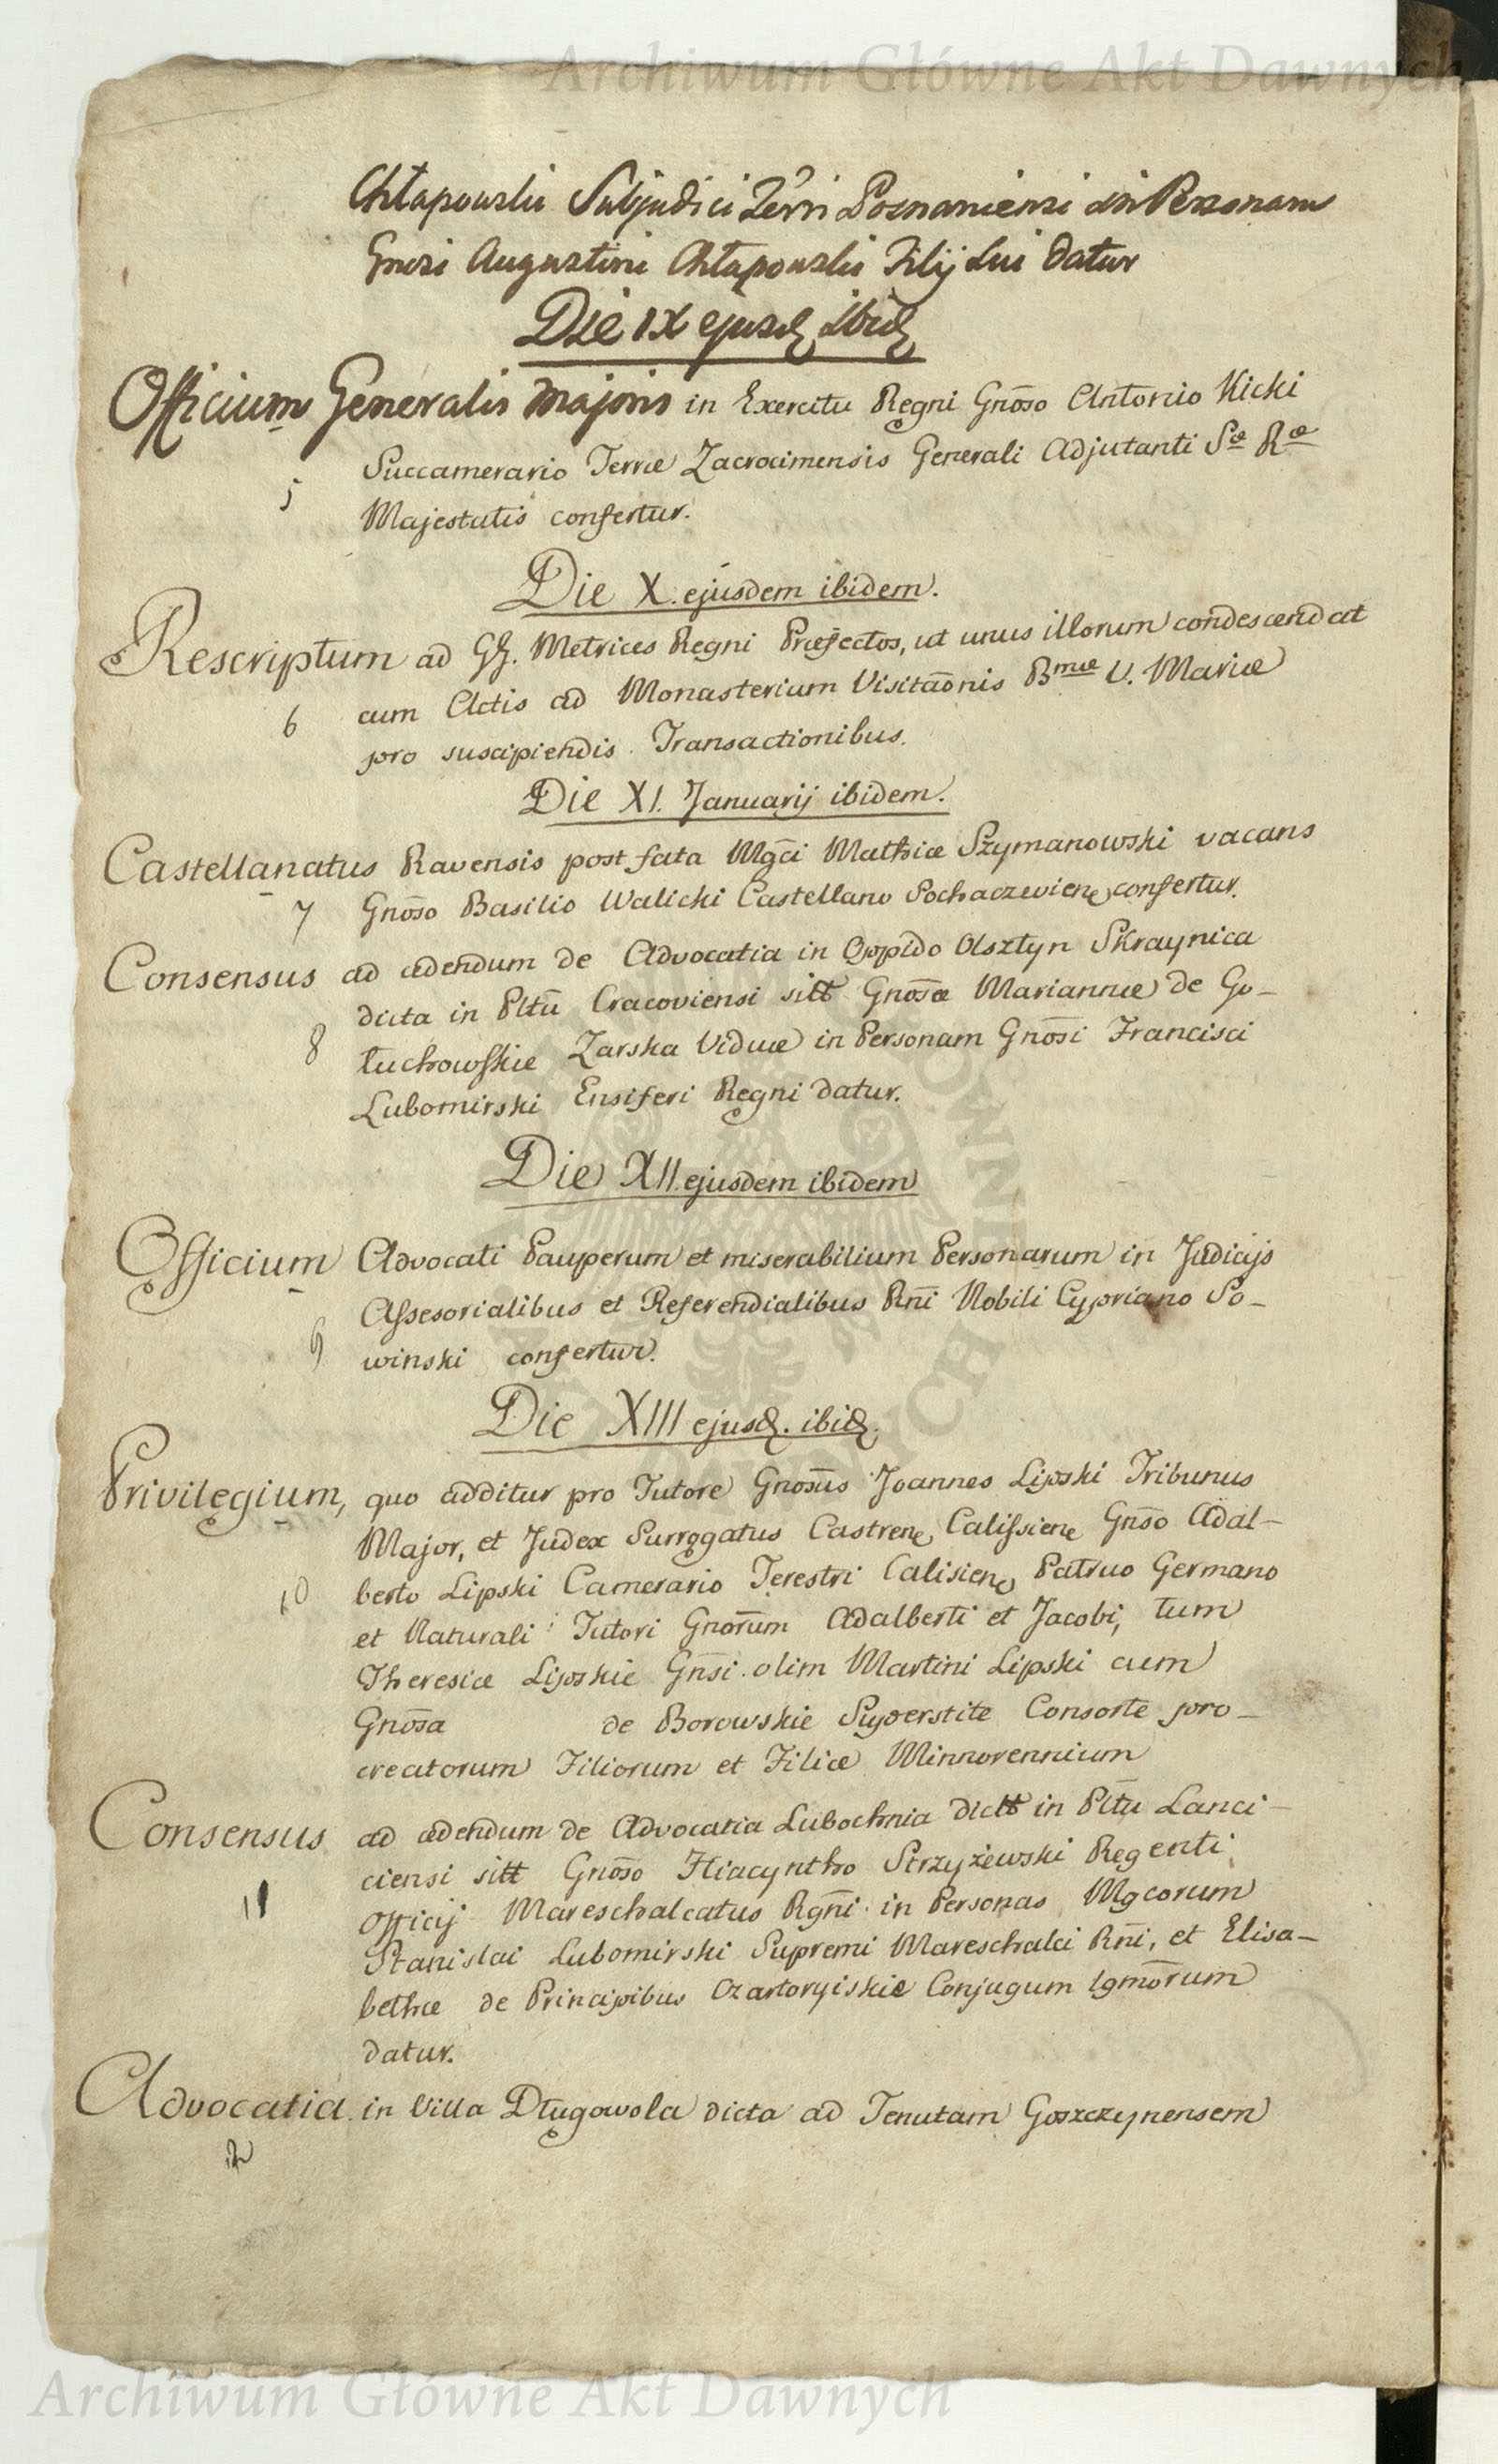 Archiwum Główne Akt Dawnych
Chłapowski Subjudici Terri Posnaniensi in Personam
Gnosi Augustini Chłapowski Filij Sui datur
Die IX ejusd ibid
Officium Generalis Majoris in Exercitu Regni Gnōso Antonio Kicki
5 Succamerario Terræ Zacrocimensis Generali Adjutanti Sæ Ræ
Majestatis confertur.
Die X. ejusdem ibidem.
Rescriptum ad GG. Metrices Regni Præfectos, ut unus illorum condescendat
6 cum Actis ad Monasterium Visitaōnis Bmæ V. Mariæ
pro suscipiendis Transactionibus.
Die XI. Januarij ibidem.
Castellanatus Ravensis post fata Mgci Mathiæ Szymanowski vacans
7 Gnōso Basilio Walicki Castellano Sochaczevien confertur.
Consensus ad cedendum de Advocatia in Oppido Olsztyn Skraynica
dicta in Pltū Cracoviensi sitt Gnosæ Mariannæ de Go-
8 łuchowskie Zarska Viduæ in Personam Gnōsi Francisci
Lubomirski Ensiferi Regni datur.
Die XII ejusdem ibidem
Officium Advocati Pauperum et miserabilium Personarum in Judicijs
Assesorialibus et Referendialibus Rni Nobili Cypriano So-
9 winski confertur.
Die XIII ejusd. ibid.
Privilegium, quo additur pro Tutore Gnosūs Joannes Lipski Tribunus
Major, et Judex Surrogatus Castren Calissien Gnōso Adal-
10 berto Lipski Camerario Terestri Calisien Patruo Germano
et Naturali Tutori Gnorūm Adalberti et Jacobi, tum
Theresiæ Lipskie Gnsi olim Martini Lipski cum
Gnōsa de Borowskie Superstite Consorte pro-
creatorum Filiorum et Filiæ Minnorennium
Consensus ad cedendum de Advocatia Lubochnia dictt in Pltū Lanci-
ciensi sitt Gnōso Hiacyntho Strzyżewski Regenti
11 Officij Mareschalcatus Rgni in Personas Mgcorum
Stanislai Lubomirski Supremi Mareschalci Rni, et Elisa-
bethæ de Principibus Czartoryiskie Conjugum Igmōrum
datur.
Advocatia in Villa Długawola dicta ad Tenutam Goszczynensem
12
Archiwum Główne Akt Dawnych